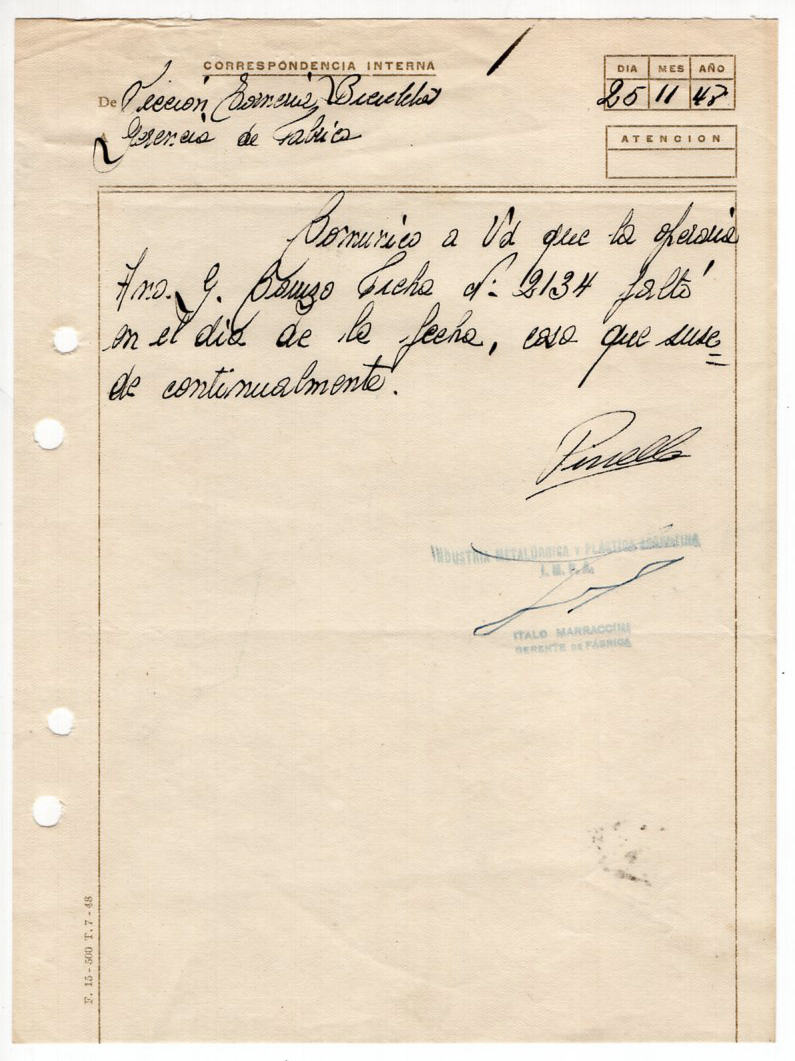 CORRESPONDENCIA INTERNA
De Sección Tornería Bicicletas
A Gerencia de Fabrica
DIA MES AÑO
25 11 48
ATENCION
Comunico a Vd que la operaria
Ana. G. ficha Nº 2134 faltó
en el dia de la fecha, cosa que suse
de continualmente.
Pinella
INDUSTRIA METALÚRGICA Y PLÁSTICA ARGENTINA
I. M. P. A.
ITALO MARRACCINI
GERENTE DE FÁBRICA
F. 15 - 500 T. 7 - 48